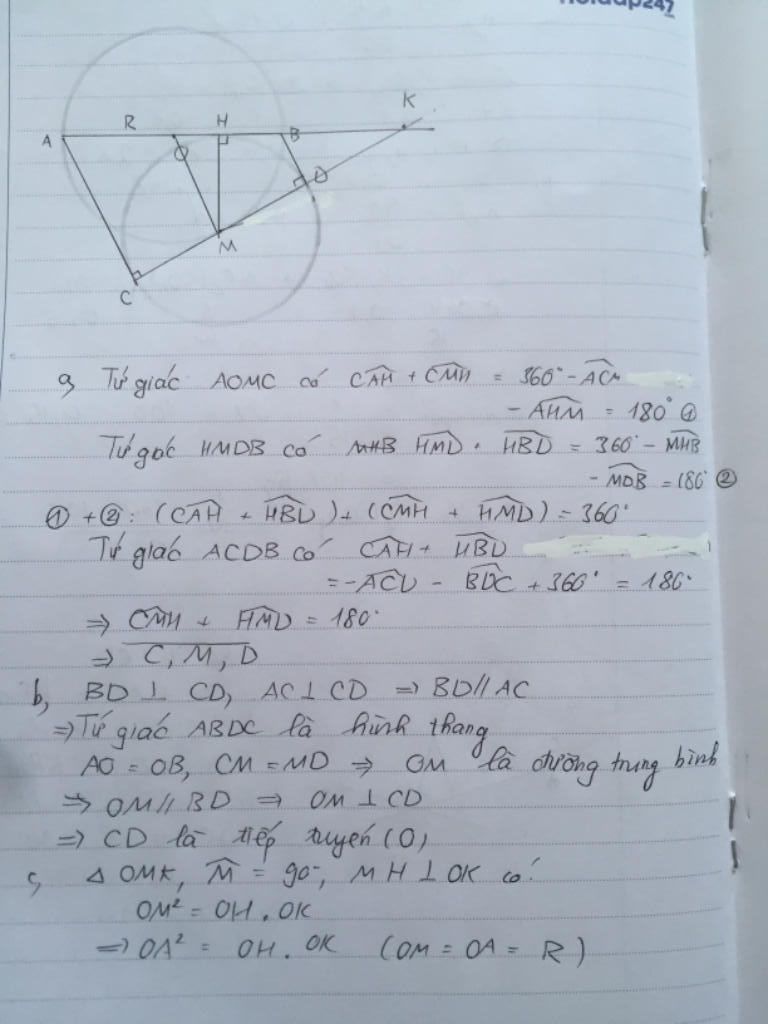 hoidap247
K
A
R
H
B
O
D
M
C
a, Tứ giác AOMC có CAH + CMH = 360° - ACM
- AHM = 180° ①
Tứ góc HMDB có HMD + HBD = 360° - MHB
- MDB = 180° ②
① + ②: (CAH + HBD) + (CMH + HMD) = 360°
Tứ giác ACDB có CAH + HBD
= -ACD - BDC + 360° = 180°
=> CMH + HMD = 180°
=> C, M, D
b, BD ⊥ CD, AC ⊥ CD => BD // AC
=> Tứ giác ABDC là hình thang
AO = OB, CM = MD => OM là đường trung bình
=> OM // BD => OM ⊥ CD
=> CD là tiếp tuyến (O)
c, Δ OMK, M = 90°, MH ⊥ OK có
OM² = OH . OK
=> OA² = OH . OK (OM = OA = R)